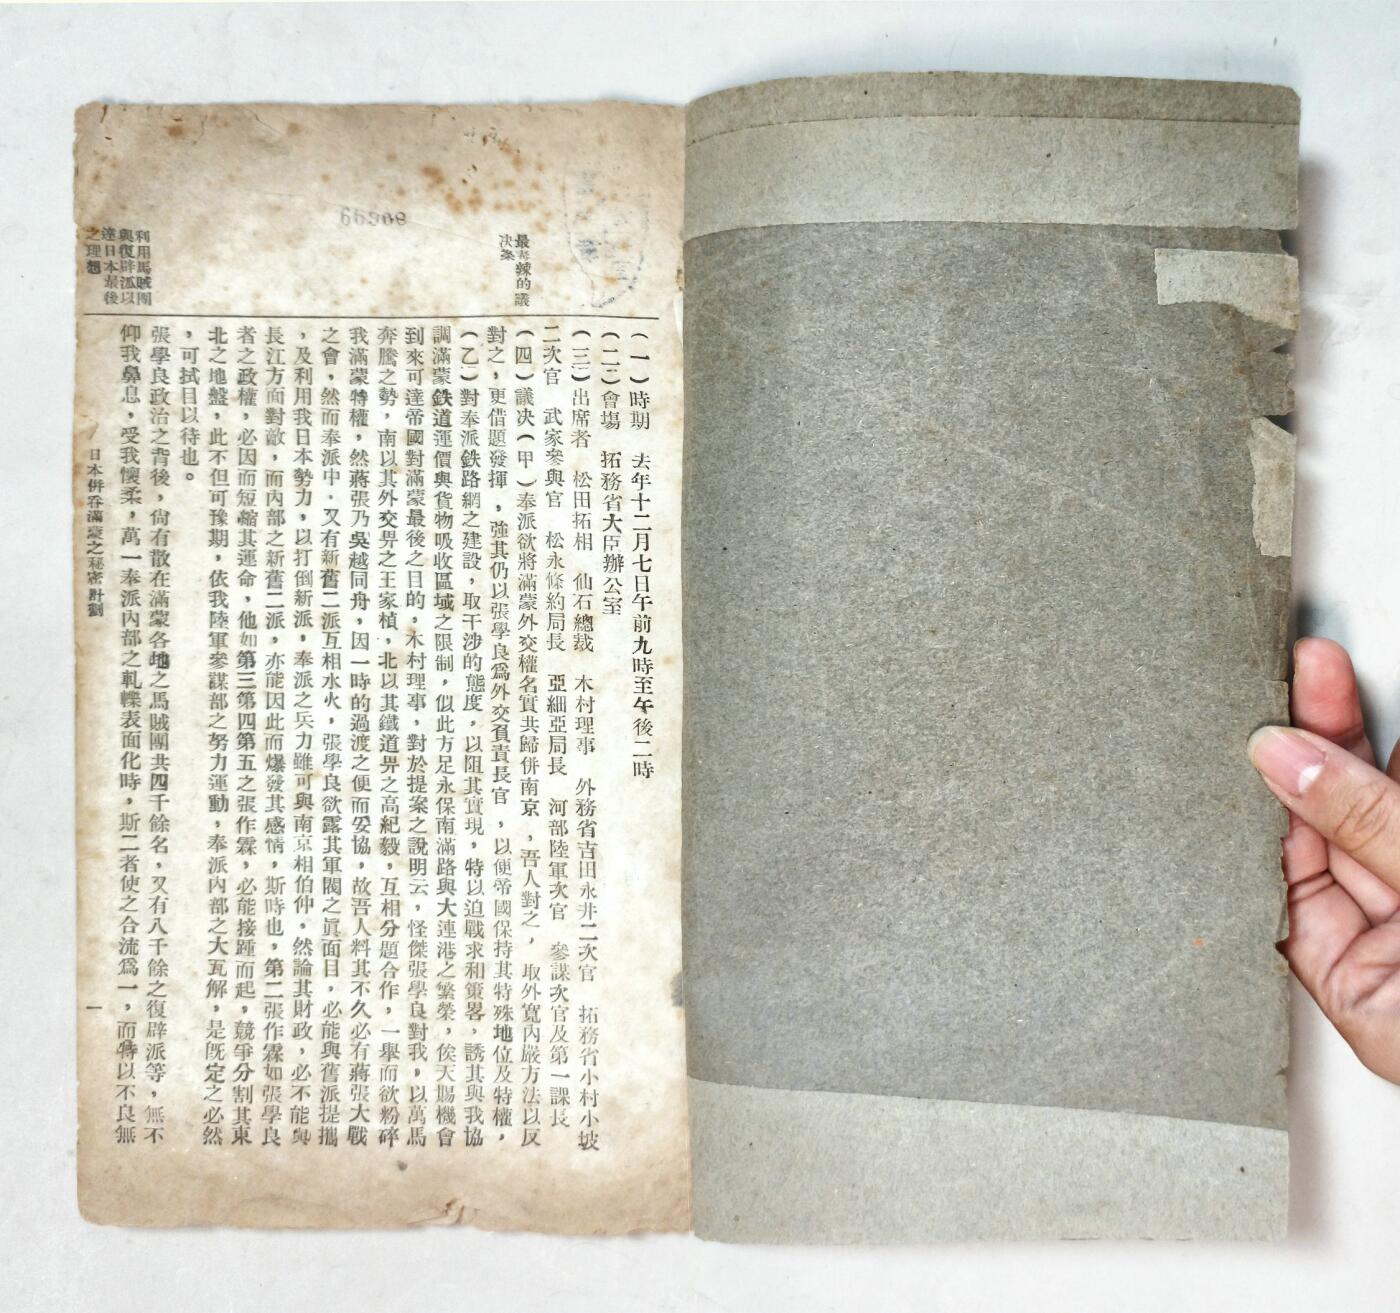 最毒辣的議
決案
(一)時期　去年十二月七日午前九時至午後二時
(二)會場　拓務省大臣辦公室
(三)出席者　松田拓相　仙石總裁　木村理事　外務省吉田永井二次官　拓務省小村小坡
二次官　武家參與官　松永條約局長　亞細亞局長　河部陸軍次官　參謀次官及第一課長
(四)議決(甲)奉派欲將滿蒙外交權名實共歸併南京，吾人對之，取外寬內嚴方法以反
對之，更借題發揮，強其仍以張學良爲外交負責長官，以便帝國保持其特殊地位及特權，
(乙)對奉派鉄路網之建設，取干涉的態度，以阻其實現，特以迫戰求和策畧，誘其與我協
調滿蒙鉄道運價與貨物吸收區域之限制，似此方足永保南滿路與大連港之繁榮，俟天賜機會
到來可達帝國對滿蒙最後之目的，木村理事，對於提案之說明云，怪傑張學良對我，以萬馬
奔騰之勢，南以其外交界之王家楨，北以其鐵道界之高紀毅，互相分題合作，一舉而欲粉碎
我滿蒙特權，然蔣張乃吳越同舟，因一時的過渡之便而妥協，故吾人料其不久必有蔣張大戰
之會，然而奉派中，又有新舊二派互相水火，張學良欲露其軍閥之眞面目，必能與舊派提攜
，及利用我日本勢力，以打倒新派，奉派之兵力雖可與南京相伯仲，然論其財政，必不能與
長江方面對敵，而內部之新舊二派，亦能因此而爆發其感情，斯時也，第二張作霖如張學良
者之政權，必因而短縮其運命，他如第三第四第五之張作霖，必能接踵而起，競爭分割其東
北之地盤，此不但可豫期，依我陸軍參謀部之努力運動，奉派內部之大瓦解，是旣定之必然
，可拭目以待也。
利用馬賊團
與復辟派以
達日本最後
之理想
張學良政治之背後，尙有散在滿蒙各地之馬賊團共四千餘名，又有八千餘之復辟派等，無不
仰我鼻息，受我懷柔，萬一奉派內部之軋轢表面化時，斯二者使之合流爲一，而特以不良無
日本併吞滿蒙之秘密計劃
一